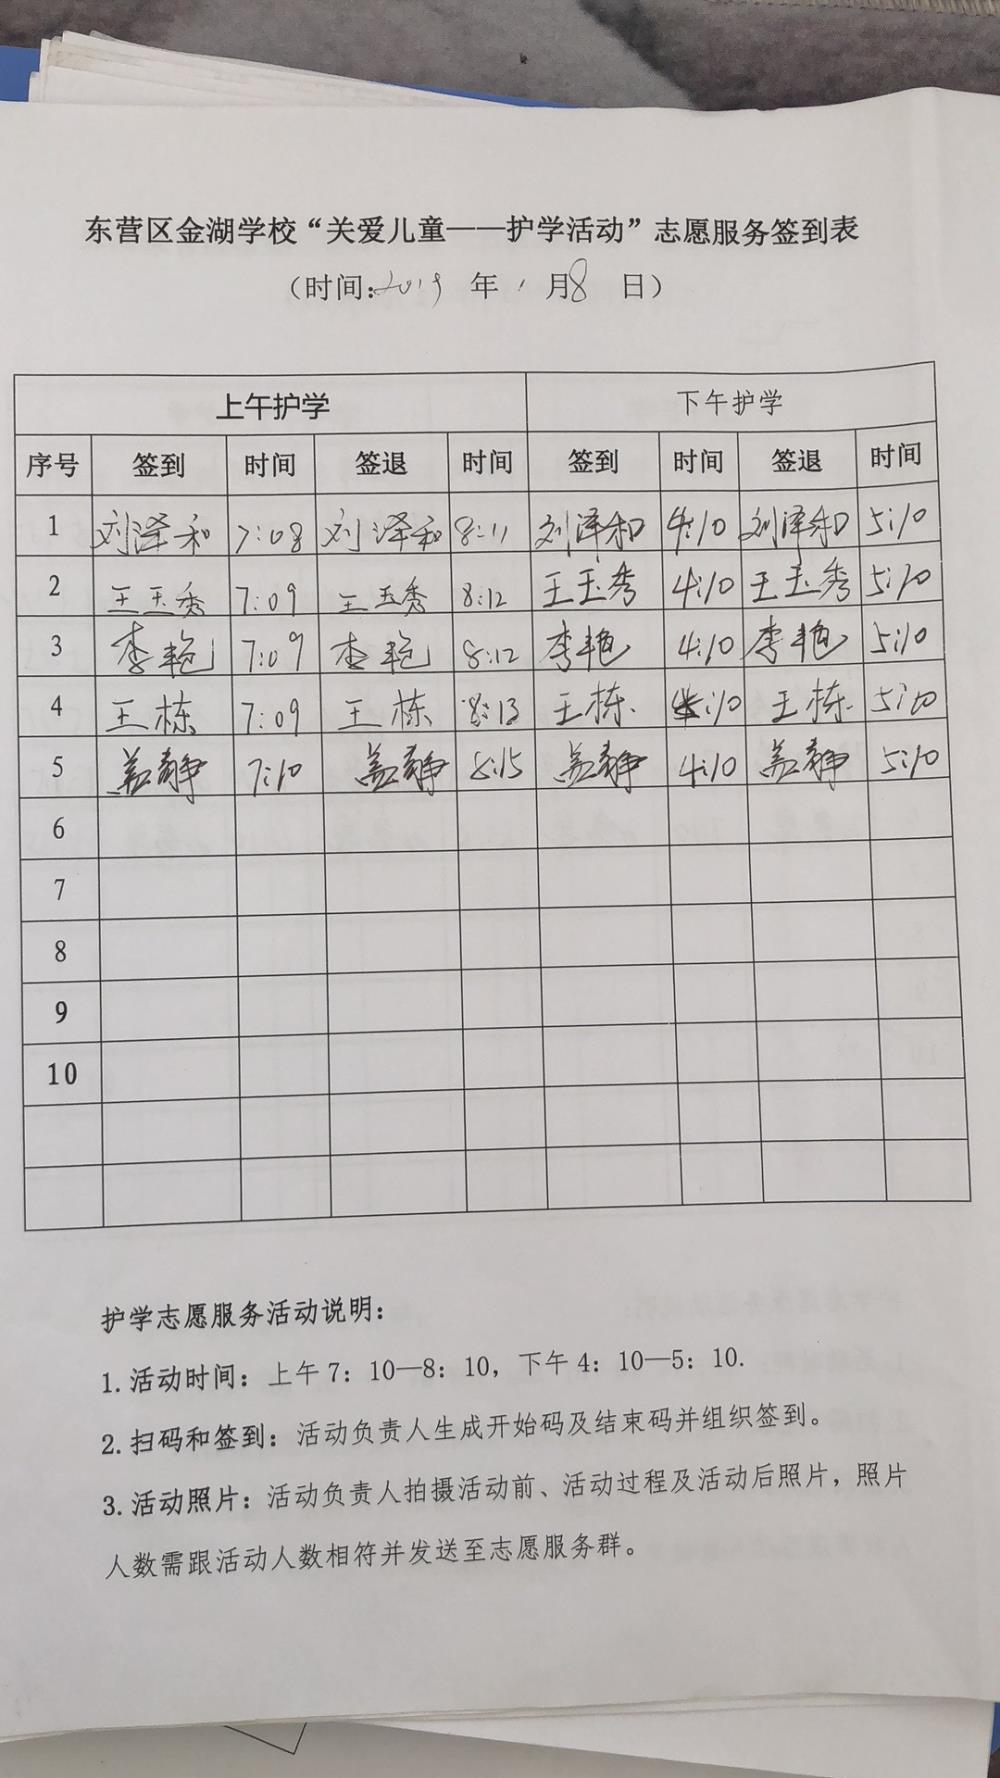 东营区金湖学校“关爱儿童——护学活动”志愿服务签到表
（时间:2019 年 1 月8 日）
上午护学 下午护学
序号 签到 时间 签退 时间 签到 时间 签退 时间
1 刘泽和 7:08 刘泽和 8:11 刘泽和 4:10 刘泽和 5:10
2 王玉秀 7:09 王玉秀 8:12 王玉秀 4:10 王玉秀 5:10
3 李艳 7:09 李艳 8:12 李艳 4:10 李艳 5:10
4 王栋 7:09 王栋 8:13 王栋 4:10 王栋 5:10
5 盖静 7:10 盖静 8:15 盖静 4:10 盖静 5:10
6
7
8
9
10
护学志愿服务活动说明：
1.活动时间：上午7：10—8：10，下午4：10—5：10.
2.扫码和签到：活动负责人生成开始码及结束码并组织签到。
3.活动照片：活动负责人拍摄活动前、活动过程及活动后照片，照片
人数需跟活动人数相符并发送至志愿服务群。